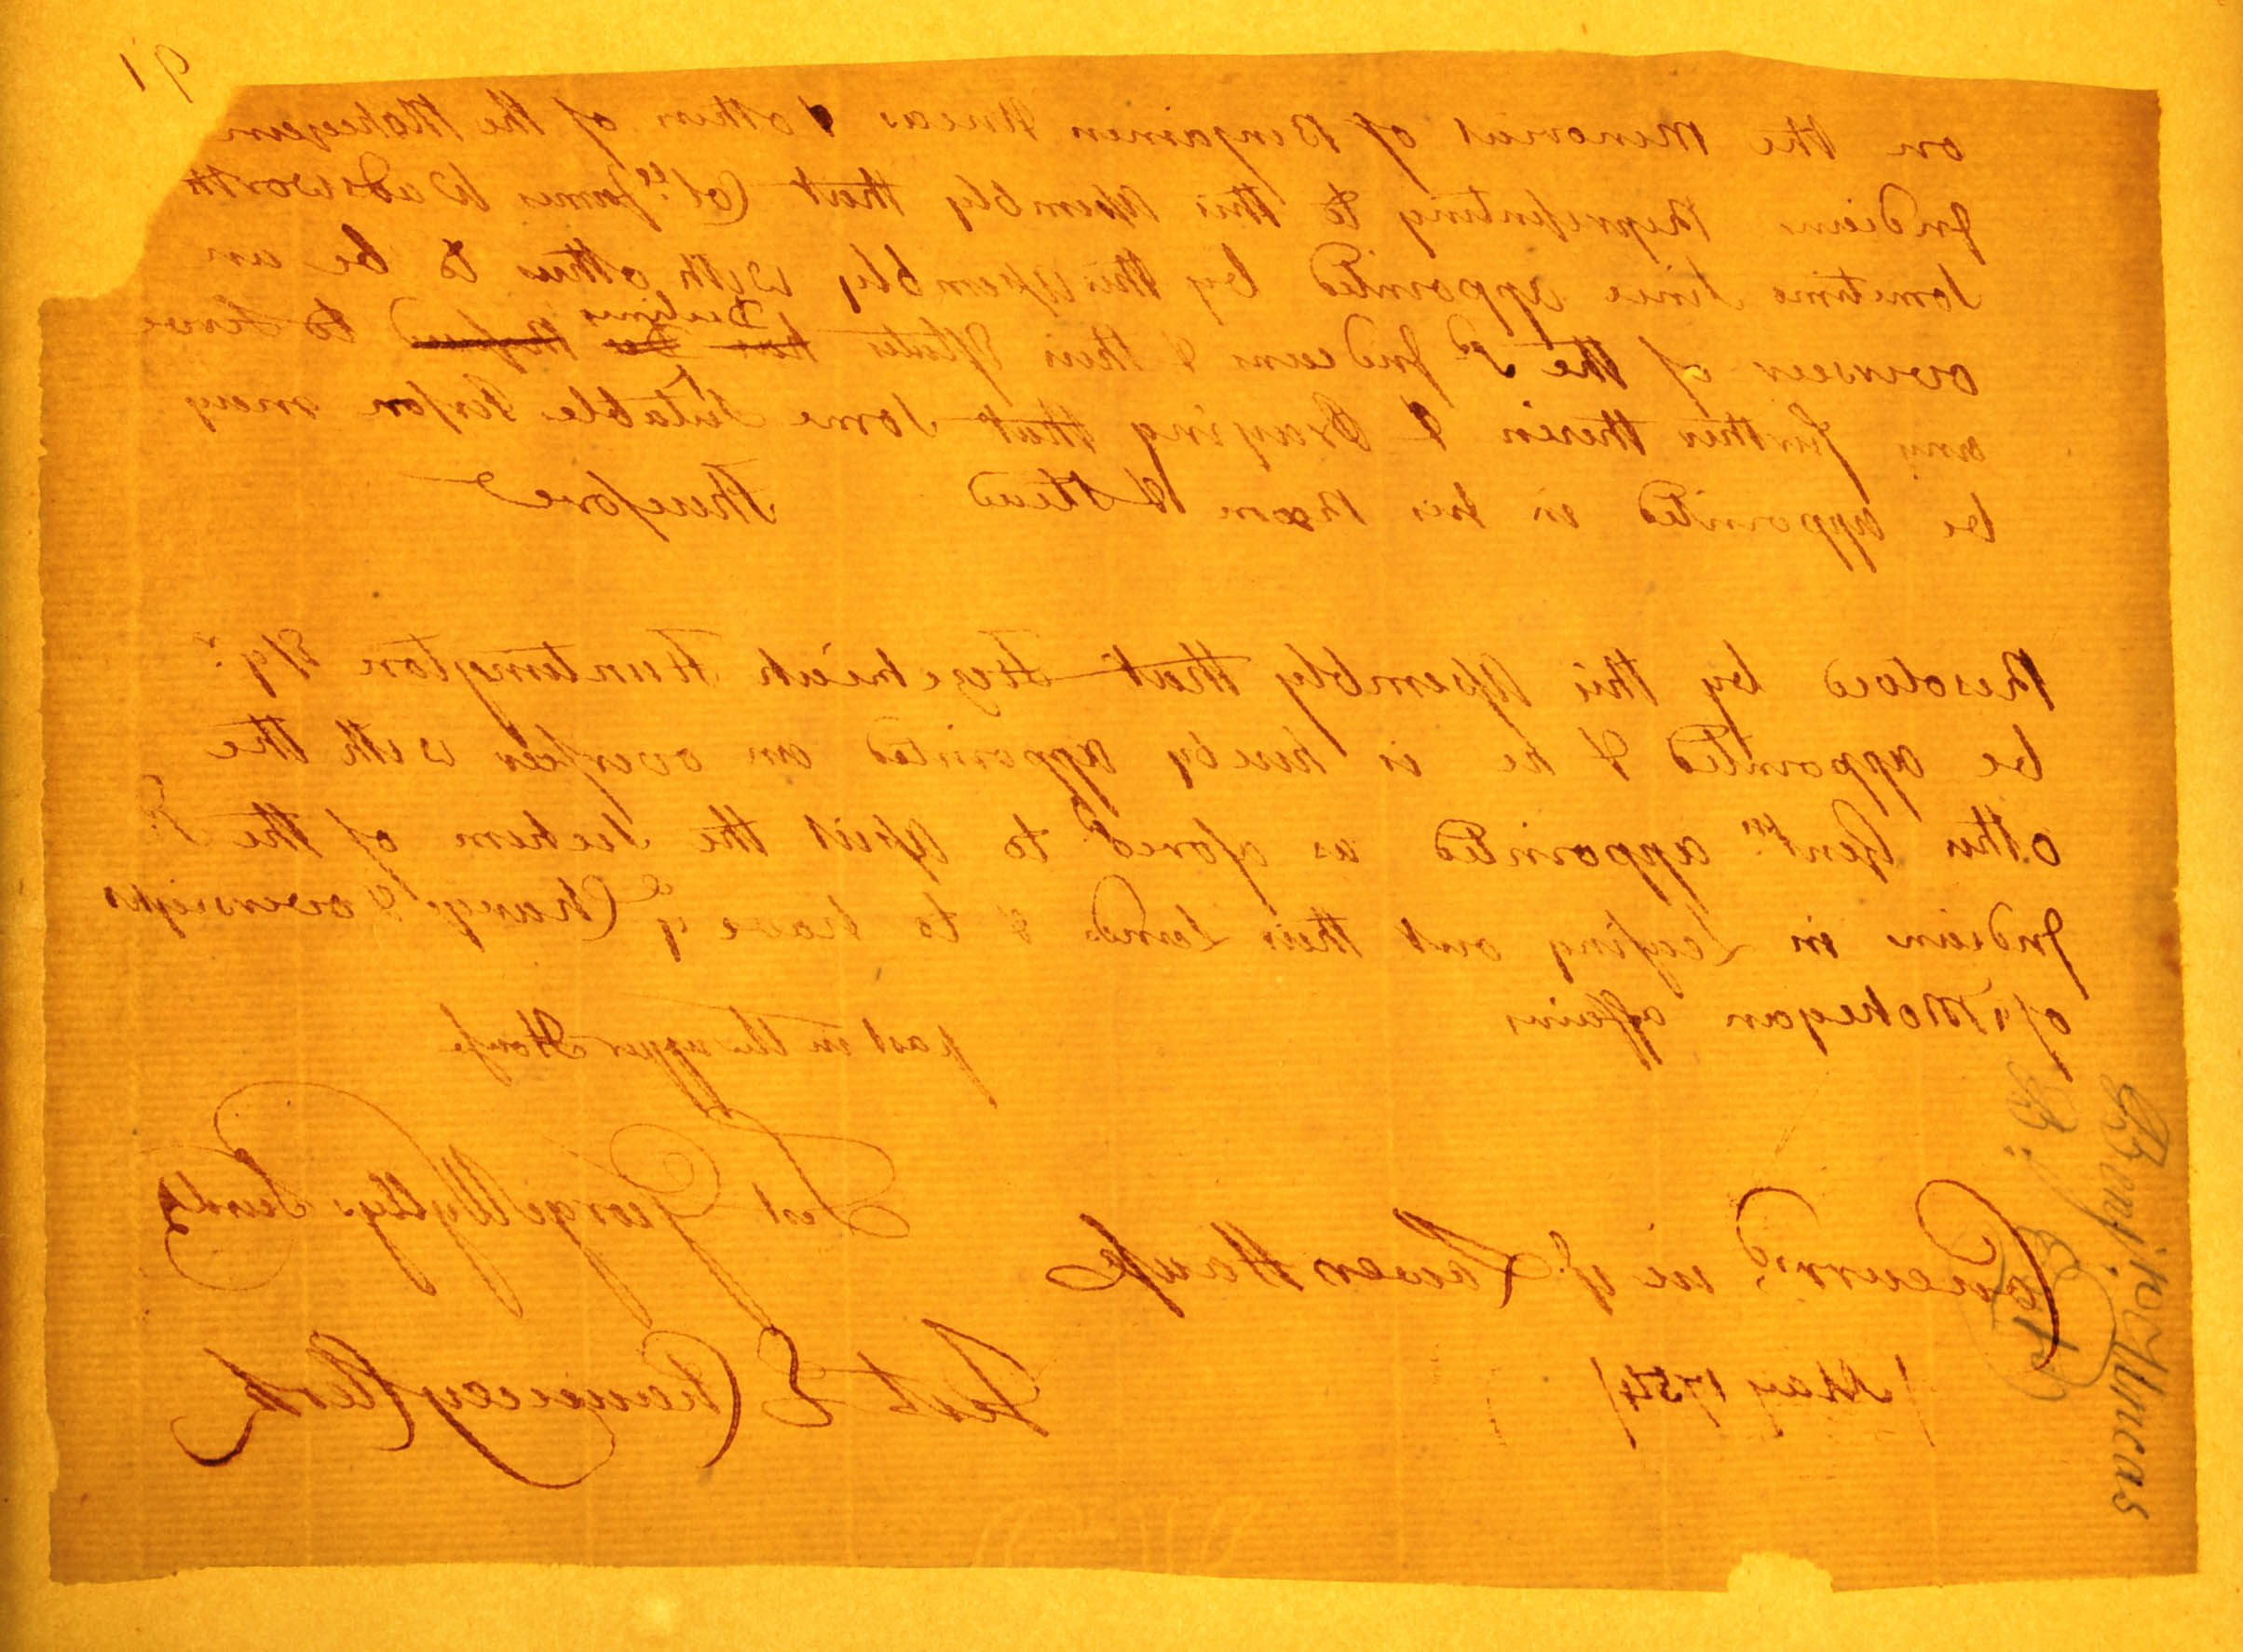 91
on the Memorial of Benjamin Uncas & others of the Mohegan
Indians Representing to this Assembly that Colle James Wadsworth
sometime since appointed by this Assembly with others to be an
overseer of the Sd Indians & their Estates has be Refused Declines to serve
any further therein & Praying that some Sutable Person may
be appointed in his Room & Stead Therefore
Resolved by this Assembly that Hezekiah Huntington Esqr
be appointed & he is hereby appointed an overseer with the
other Gentm appointed as aforesd to Assist the Sachem of the Sd
Indians in Leasing out their Lands & to have ye Charge & oversight
of ye Mohegan affairs
past in the upper House
Test George Wyllys Secrety
Concurrd in ye Lower House
Test E Chauncey Clerk
/May 1754/
Benj: Uncas